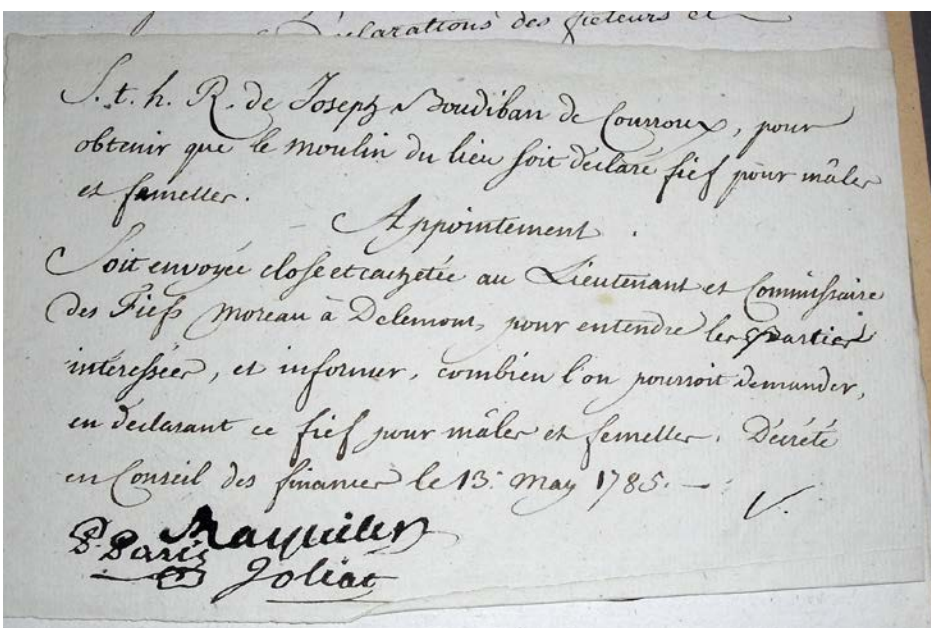 Déclarations des facteurs et
S. t. h. R. de Joseph Boudiban de Courroux, pour
obtenir que le moulin du lieu soit déclaré fief pour mâles
et femelles.
Appointement.
Soit envoyée close et cachetée au Lieutenant et Commissaire
des Fiefs Moreau à Delemont, pour entendre les Parties
intéressées, et informer, combien l'on pourroit demander,
en declarant ce fief pour mâles et femelles. Décrété
en Conseil des finances le 13. May 1785. —
V.
P. Paris
Joliat